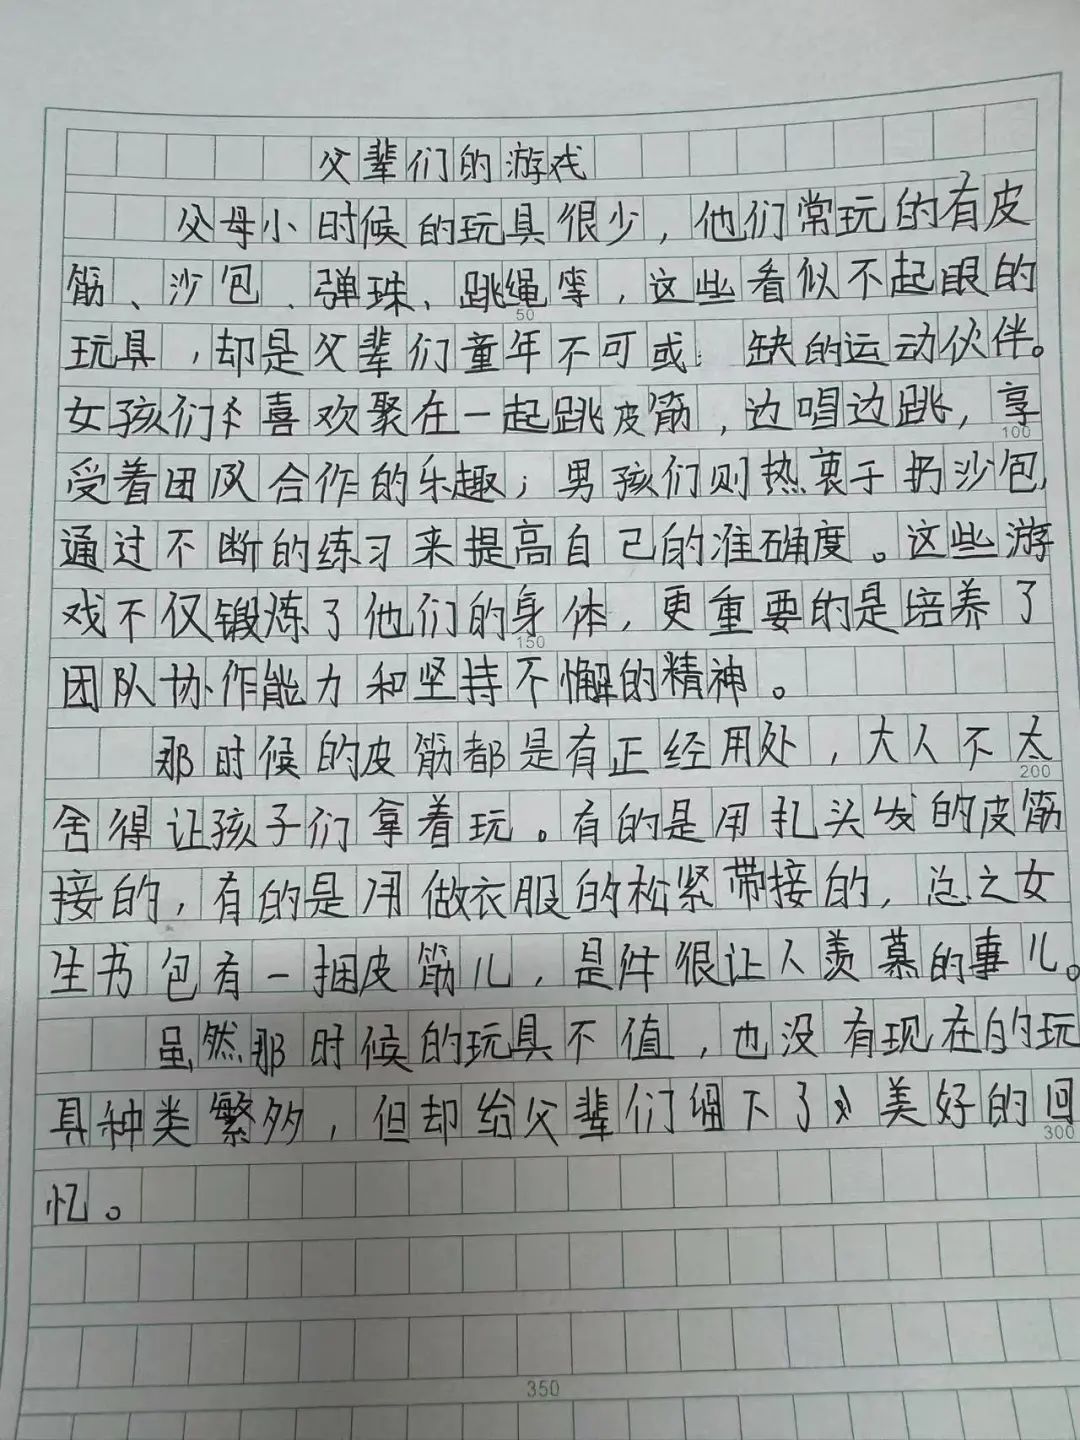 父辈们的游戏
父母小时候的玩具很少，他们常玩的有皮
筋、沙包、弹珠、跳绳等，这些看似不起眼的
50
玩具，却是父辈们童年不可或缺的运动伙伴。
女孩们喜欢聚在一起跳皮筋，边唱边跳，享
100
受着团队合作的乐趣；男孩们则热衷于扔沙包，
通过不断的练习来提高自己的准确度。这些游
戏不仅锻炼了他们的身体，更重要的是培养了
150
团队协作能力和坚持不懈的精神。
那时候的皮筋都是有正经用处，大人不太
200
舍得让孩子们拿着玩。有的是用扎头发的皮筋
接的，有的是用做衣服的松紧带接的，总之女
生书包有一捆皮筋儿，是件很让人羡慕的事儿。
虽然那时候的玩具不值，也没有现在的玩
具种类繁多，但却给父辈们留下了美好的回
300
忆。
350